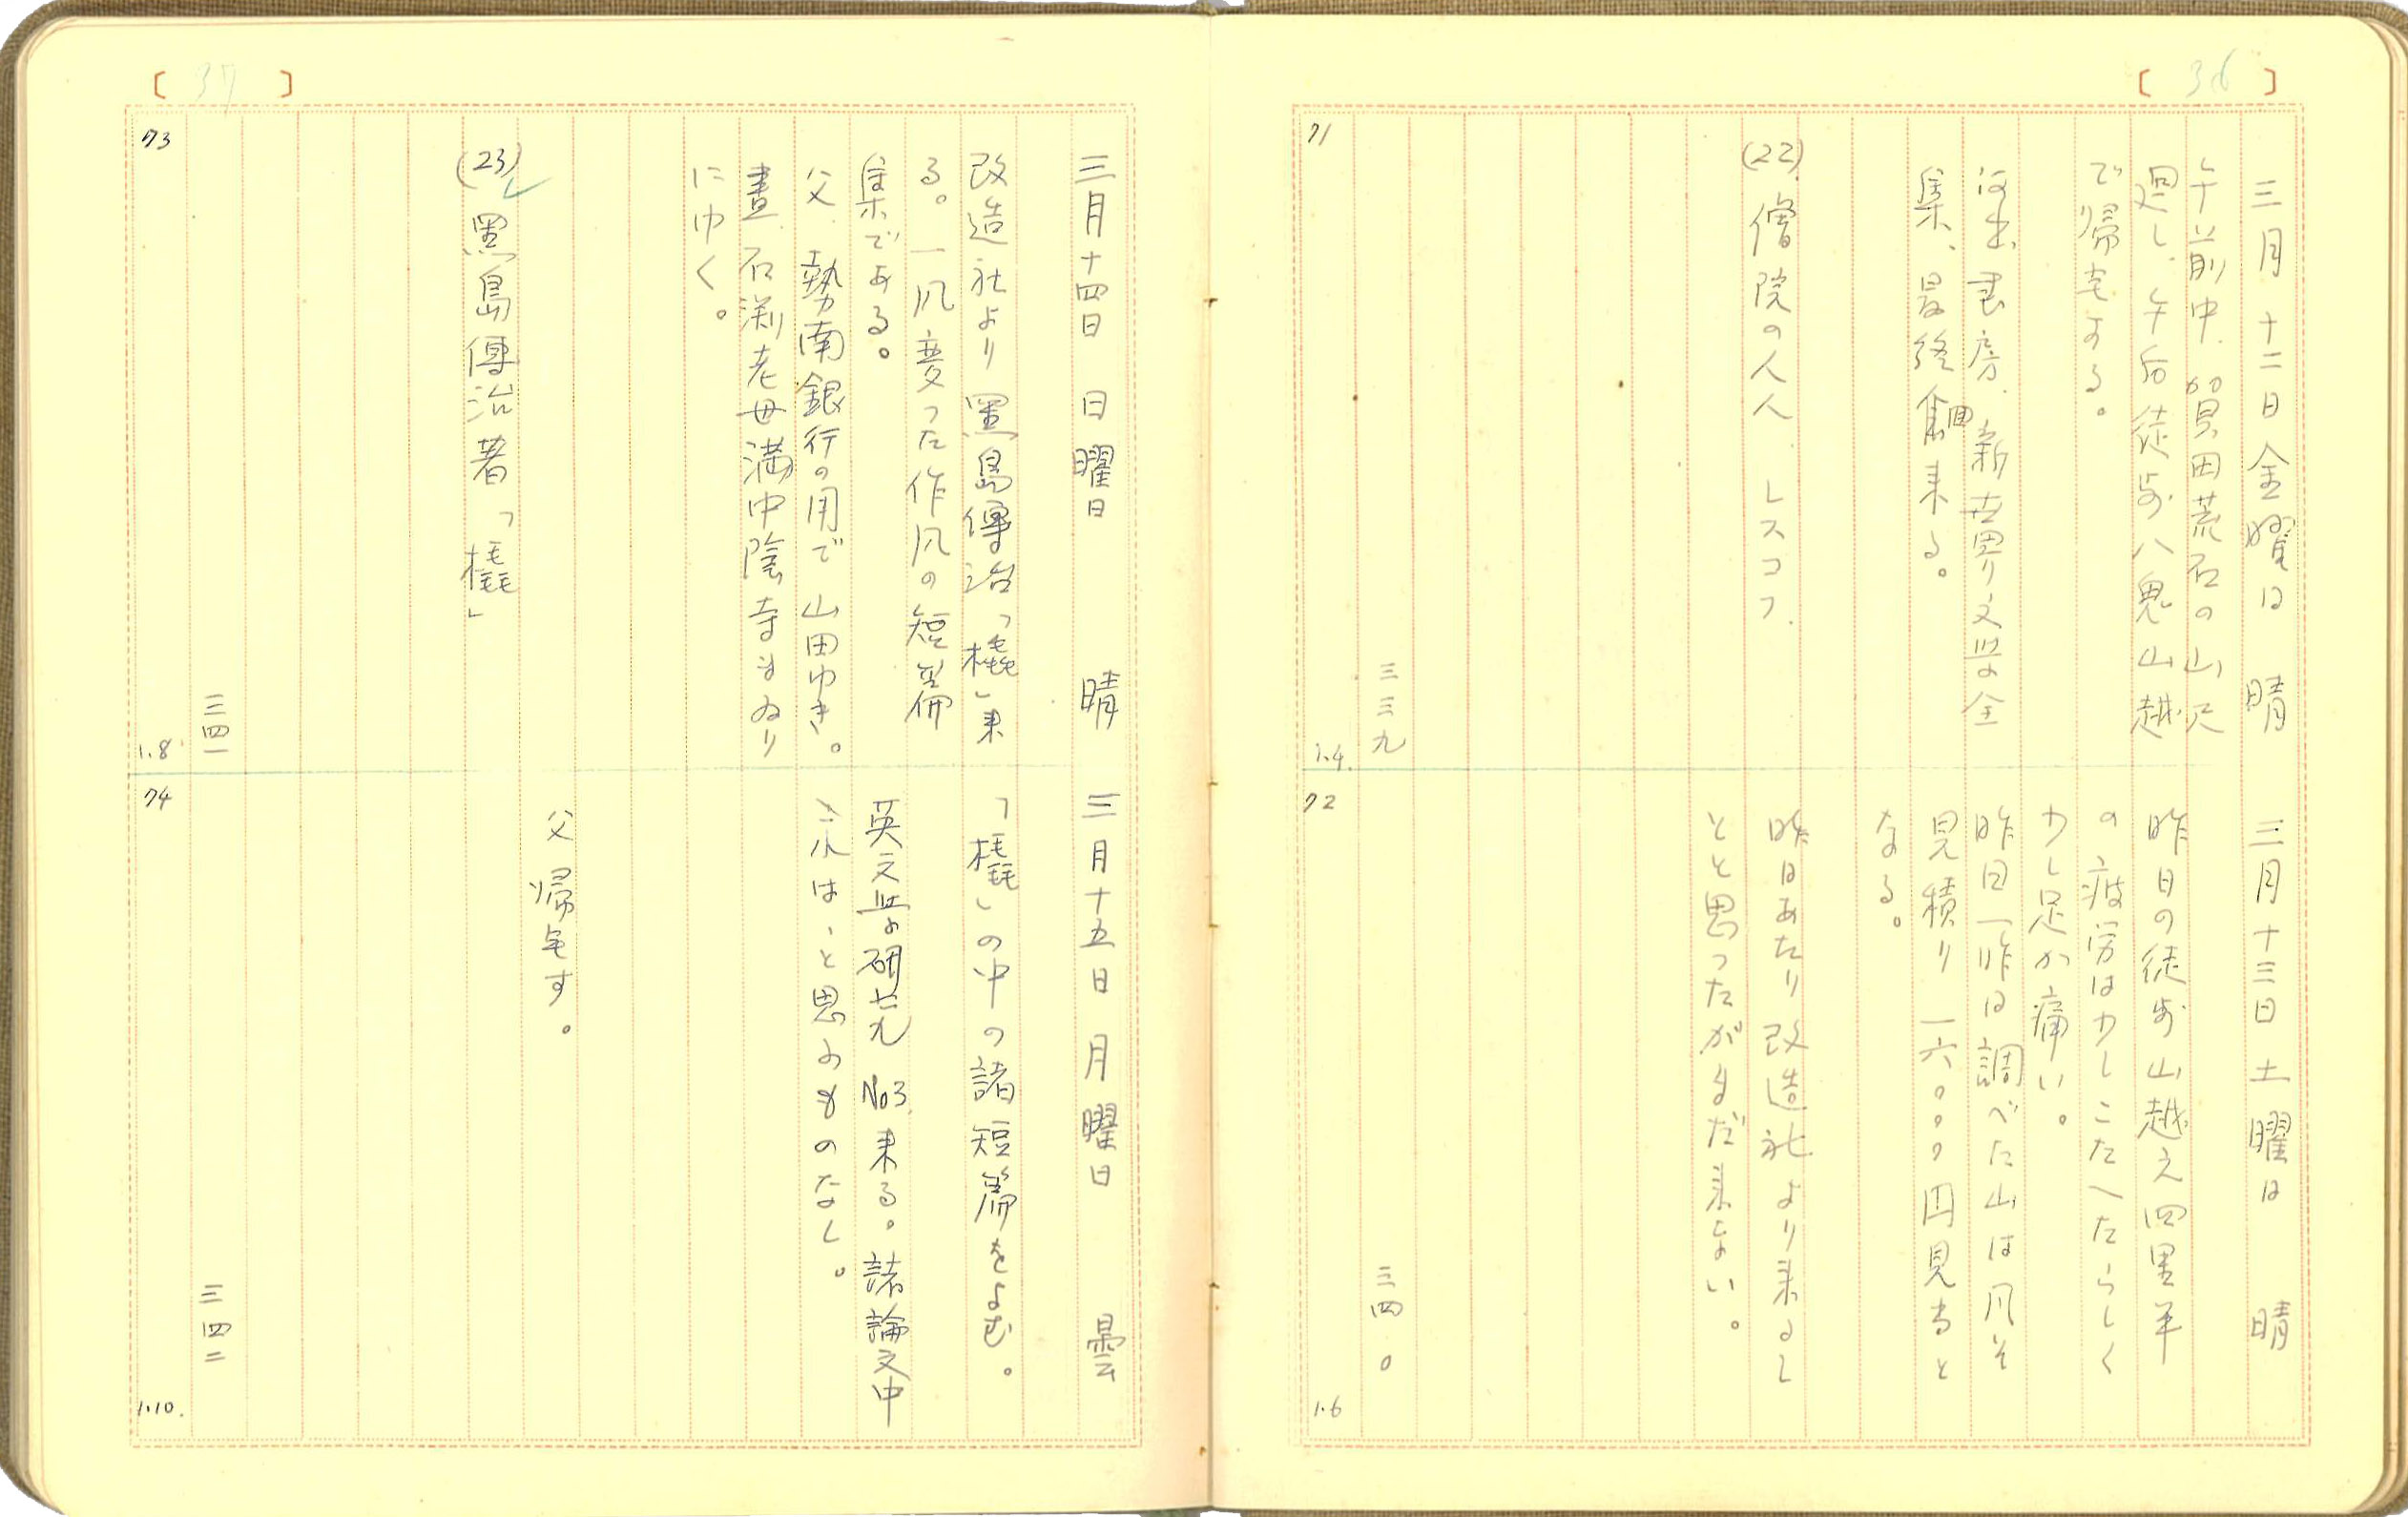 [36]
三月十二日 金曜日 晴
午前中、賀田荒石の山尺
廻し、午后徒歩八鬼山越
で帰宅する。
河出書房、新世界文学全
集、最終回来る。
(22). 僧院の人人 レスコフ.
三三九
71
1.4.
三月十三日 土曜日 晴
昨日の徒歩山越え四里半
の疲労は少しこたへたらしく
少し足が痛い。
昨日一昨日調べた山は凡そ
見積り一六〇〇〇円見当と
なる。
昨日あたり改造社より来るし
とと思ったがまだ来ない。
三四〇
72
1.6
[37]
三月十四日 日曜日 晴
改造社より黒島傳治「橇」来
る。一風変った作風の短篇
集である。
父、勢南銀行の用で山田ゆき。
晝、石渕老母満中陰寺まゐり
にゆく。
(23) 黒島傳治著「橇」
三四一
73
1.8
三月十五日 月曜日 曇
「橇」の中の諸短篇をよむ。
英文学研究 No3. 来る。諸論文中
これは、と思ふものなし。
父帰宅す。
三四二
74
1.10.